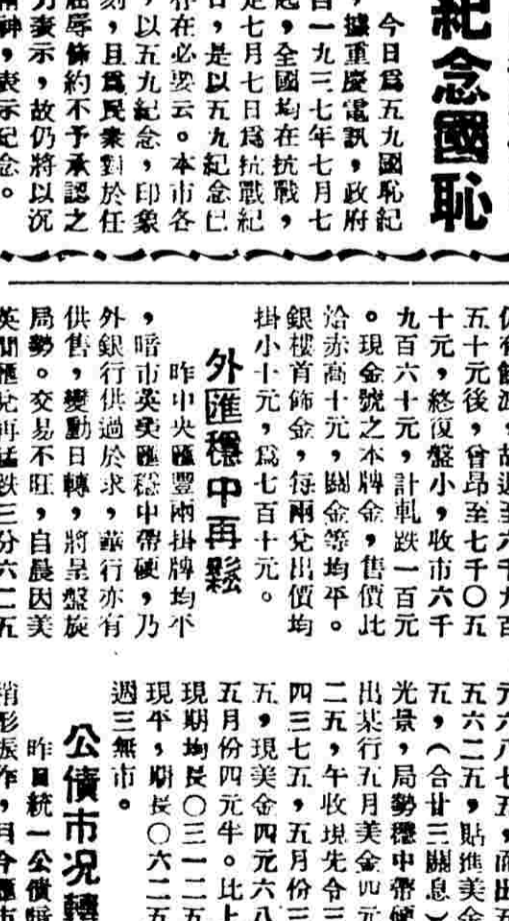 紀念國恥
今日爲五九國恥紀
,據重慶電訊,政府
自一九三七年七月七
起,全國均在抗戰,
定七月七日爲抗戰紀
日,是以五九紀念已
存在必要云。本市各
,以五九紀念,印象
刻,且爲民衆對於任
屈辱條約不予承認之
力表示,故仍將以沉
精神,表示紀念。
五十元後,曾昂至七千〇五
十元,終復盤小,收市六千
九百六十元,計軋跌一百元
。現金號之本牌金,售價比
烚赤高十元,關金等均平。
銀樓首飾金,每兩兌出價均
掛小十元,爲七百十元。
外匯穩中再鬆
昨中央匯豐兩掛牌均平
,暗市英美匯穩中帶硬,乃
外銀行供過於求,華行亦有
供售,變動日轉,將呈盤旋
局勢。交易不旺,自晨因美
英間匯兌再猛跌三分六二五
元六八七五,
五六二五,貼進美金
五,(合廿三關息
光景,局勢穩中帶
出某行五月美金四元
二五,午收現先令三
四三七五,五月份三
五,現美金四元六八
五月份四元半。比上
現期均長〇三一二五
現平,期長〇六二五
週三無市。
公債市况轉
昨日統一公債
稍形振作,